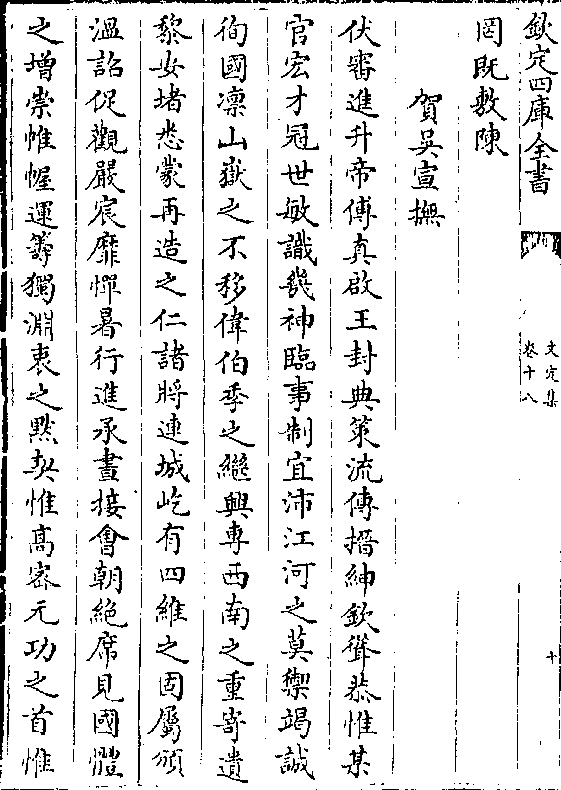 欽定四庫全書
文定集
卷十八
十
罔既敷陳
賀吳宣撫
伏審進升帝傅真啟王封典策流傳搢紳欽聳恭惟某
官宏才冠世敏識幾神臨事制宜沛江河之莫禦竭誠
徇國凜山嶽之不移偉伯季之繼興專西南之重寄遺
黎安堵悉蒙再造之仁諸將連城屹有四維之固屬頒
溫詔促觀嚴宸靡憚暑行進承晝接會朝絕席見國體
之增崇惟幄運籌獨淵衷之黙契惟髙宻元功之首惟